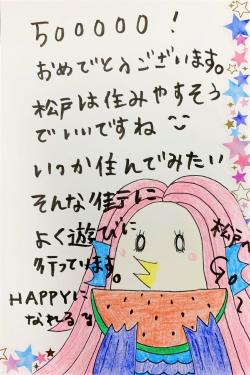 500000！
おめでとうございます。
松戸は住みやすそう
でいいですね
いつか住んでみたい
そんな街に
よく遊びに
行っています。
HAPPYに
なれる
松戸